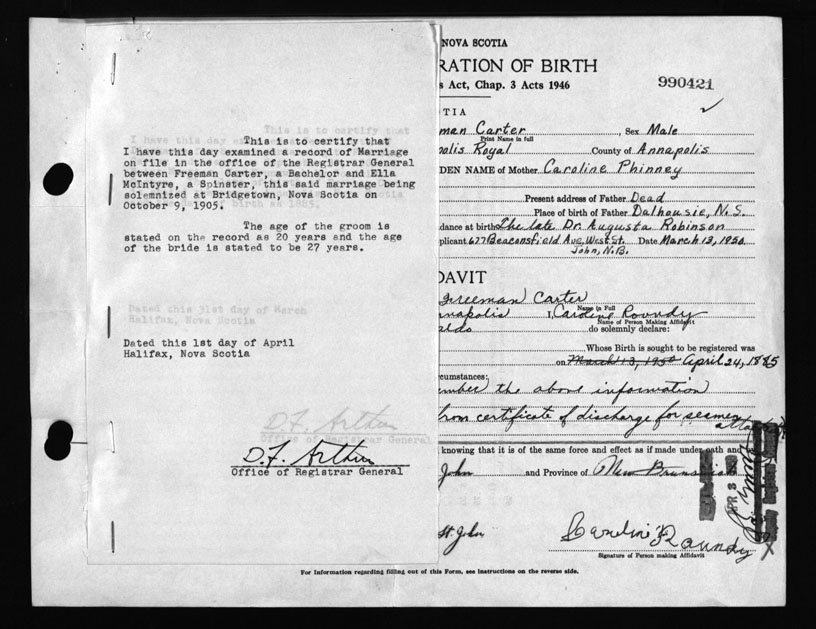 This is to certify that
I have this day examined a record of Marriage
on file in the office of the Registrar General
between Freeman Carter, a Bachelor and Ella
McIntyre, a Spinster, this said marriage being
solemnized at Bridgetown, Nova Scotia on
October 9, 1905.
The age of the groom is
stated on the record as 20 years and the age
of the bride is stated to be 27 years.
Dated this 31st day of March
Halifax, Nova Scotia
Dated this 1st day of April
Halifax, Nova Scotia
D.F. Arthur
Office of Registrar General
D.F. Arthur
Office of Registrar General
NOVA SCOTIA
RATION OF BIRTH
s Act, Chap. 3 Acts 1946
990421
TIA
man Carter, Sex Male
Print Name in full
polis Royal County of Annapolis
DEN NAME of Mother Caroline Phinney
Present address of Father Dead
Place of birth of Father Dalhousie, N.S.
dance at birth The late Dr. Augusta Robinson
plicant 677 Beaconsfield Ave, West St. Date March 13, 1950
John, N.B.
DAVIT
Freeman Carter
Name in Full
nnapolis I, Caroline Roundy
Name of Person Making Affidavit
do solemnly declare:
Whose Birth is sought to be registered was
on March 13, 1950 April 24, 1885
rcumstances:
ember the above information
from certificate of discharge for seamen
knowing that it is of the same force and effect as if made under oath and
John and Province of New Brunswick
St. John
Caroline Roundy
Signature of Person making Affidavit
For information regarding filling out of this Form, see instructions on the reverse side.